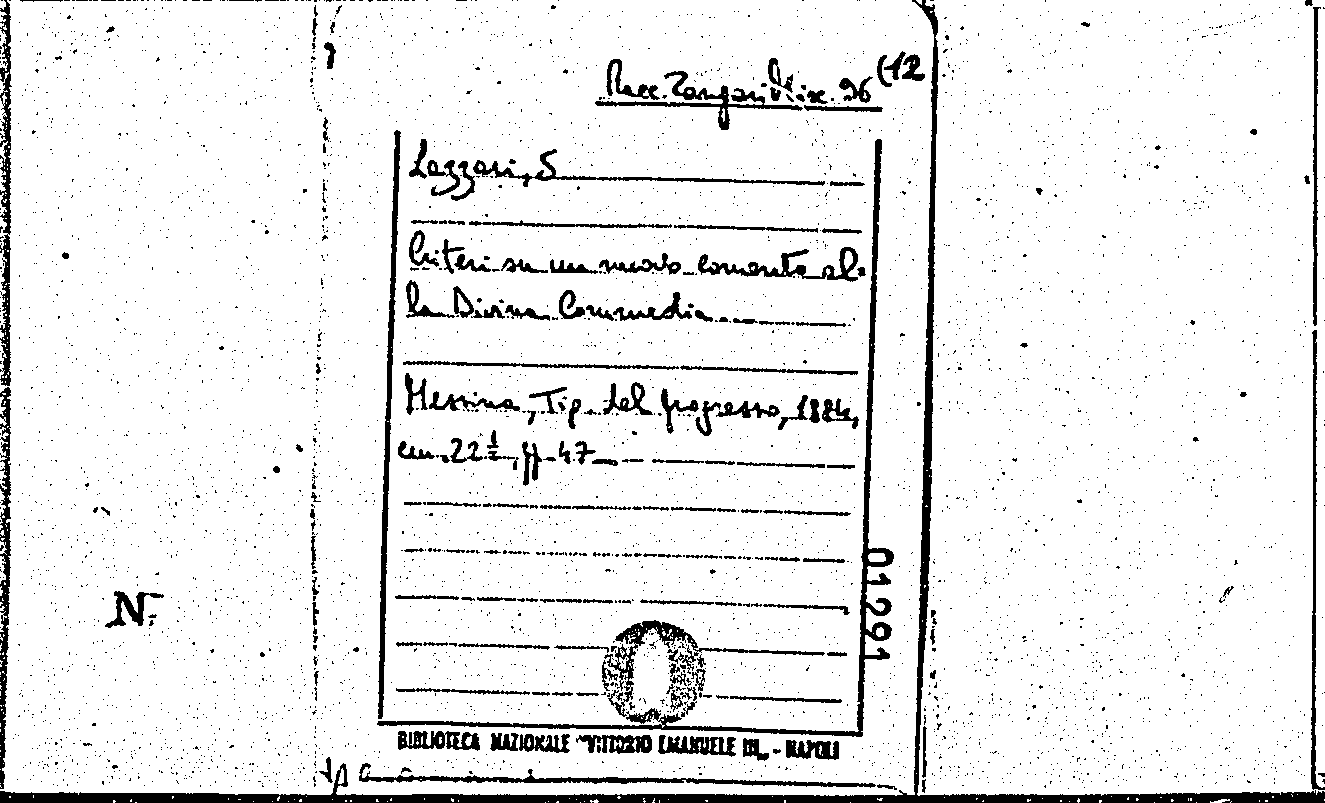 Racc. Zangari Misc. 96 (12
Lazzari, S
Criteri su un nuovo comento al=
la Divina Commedia...
Messina, Tip. del progresso, 1884,
cm. 22 ½, pp. 47
01291
N.
BIBLIOTECA NAZIONALE "VITTORIO EMANUELE III„ - NAPOLI